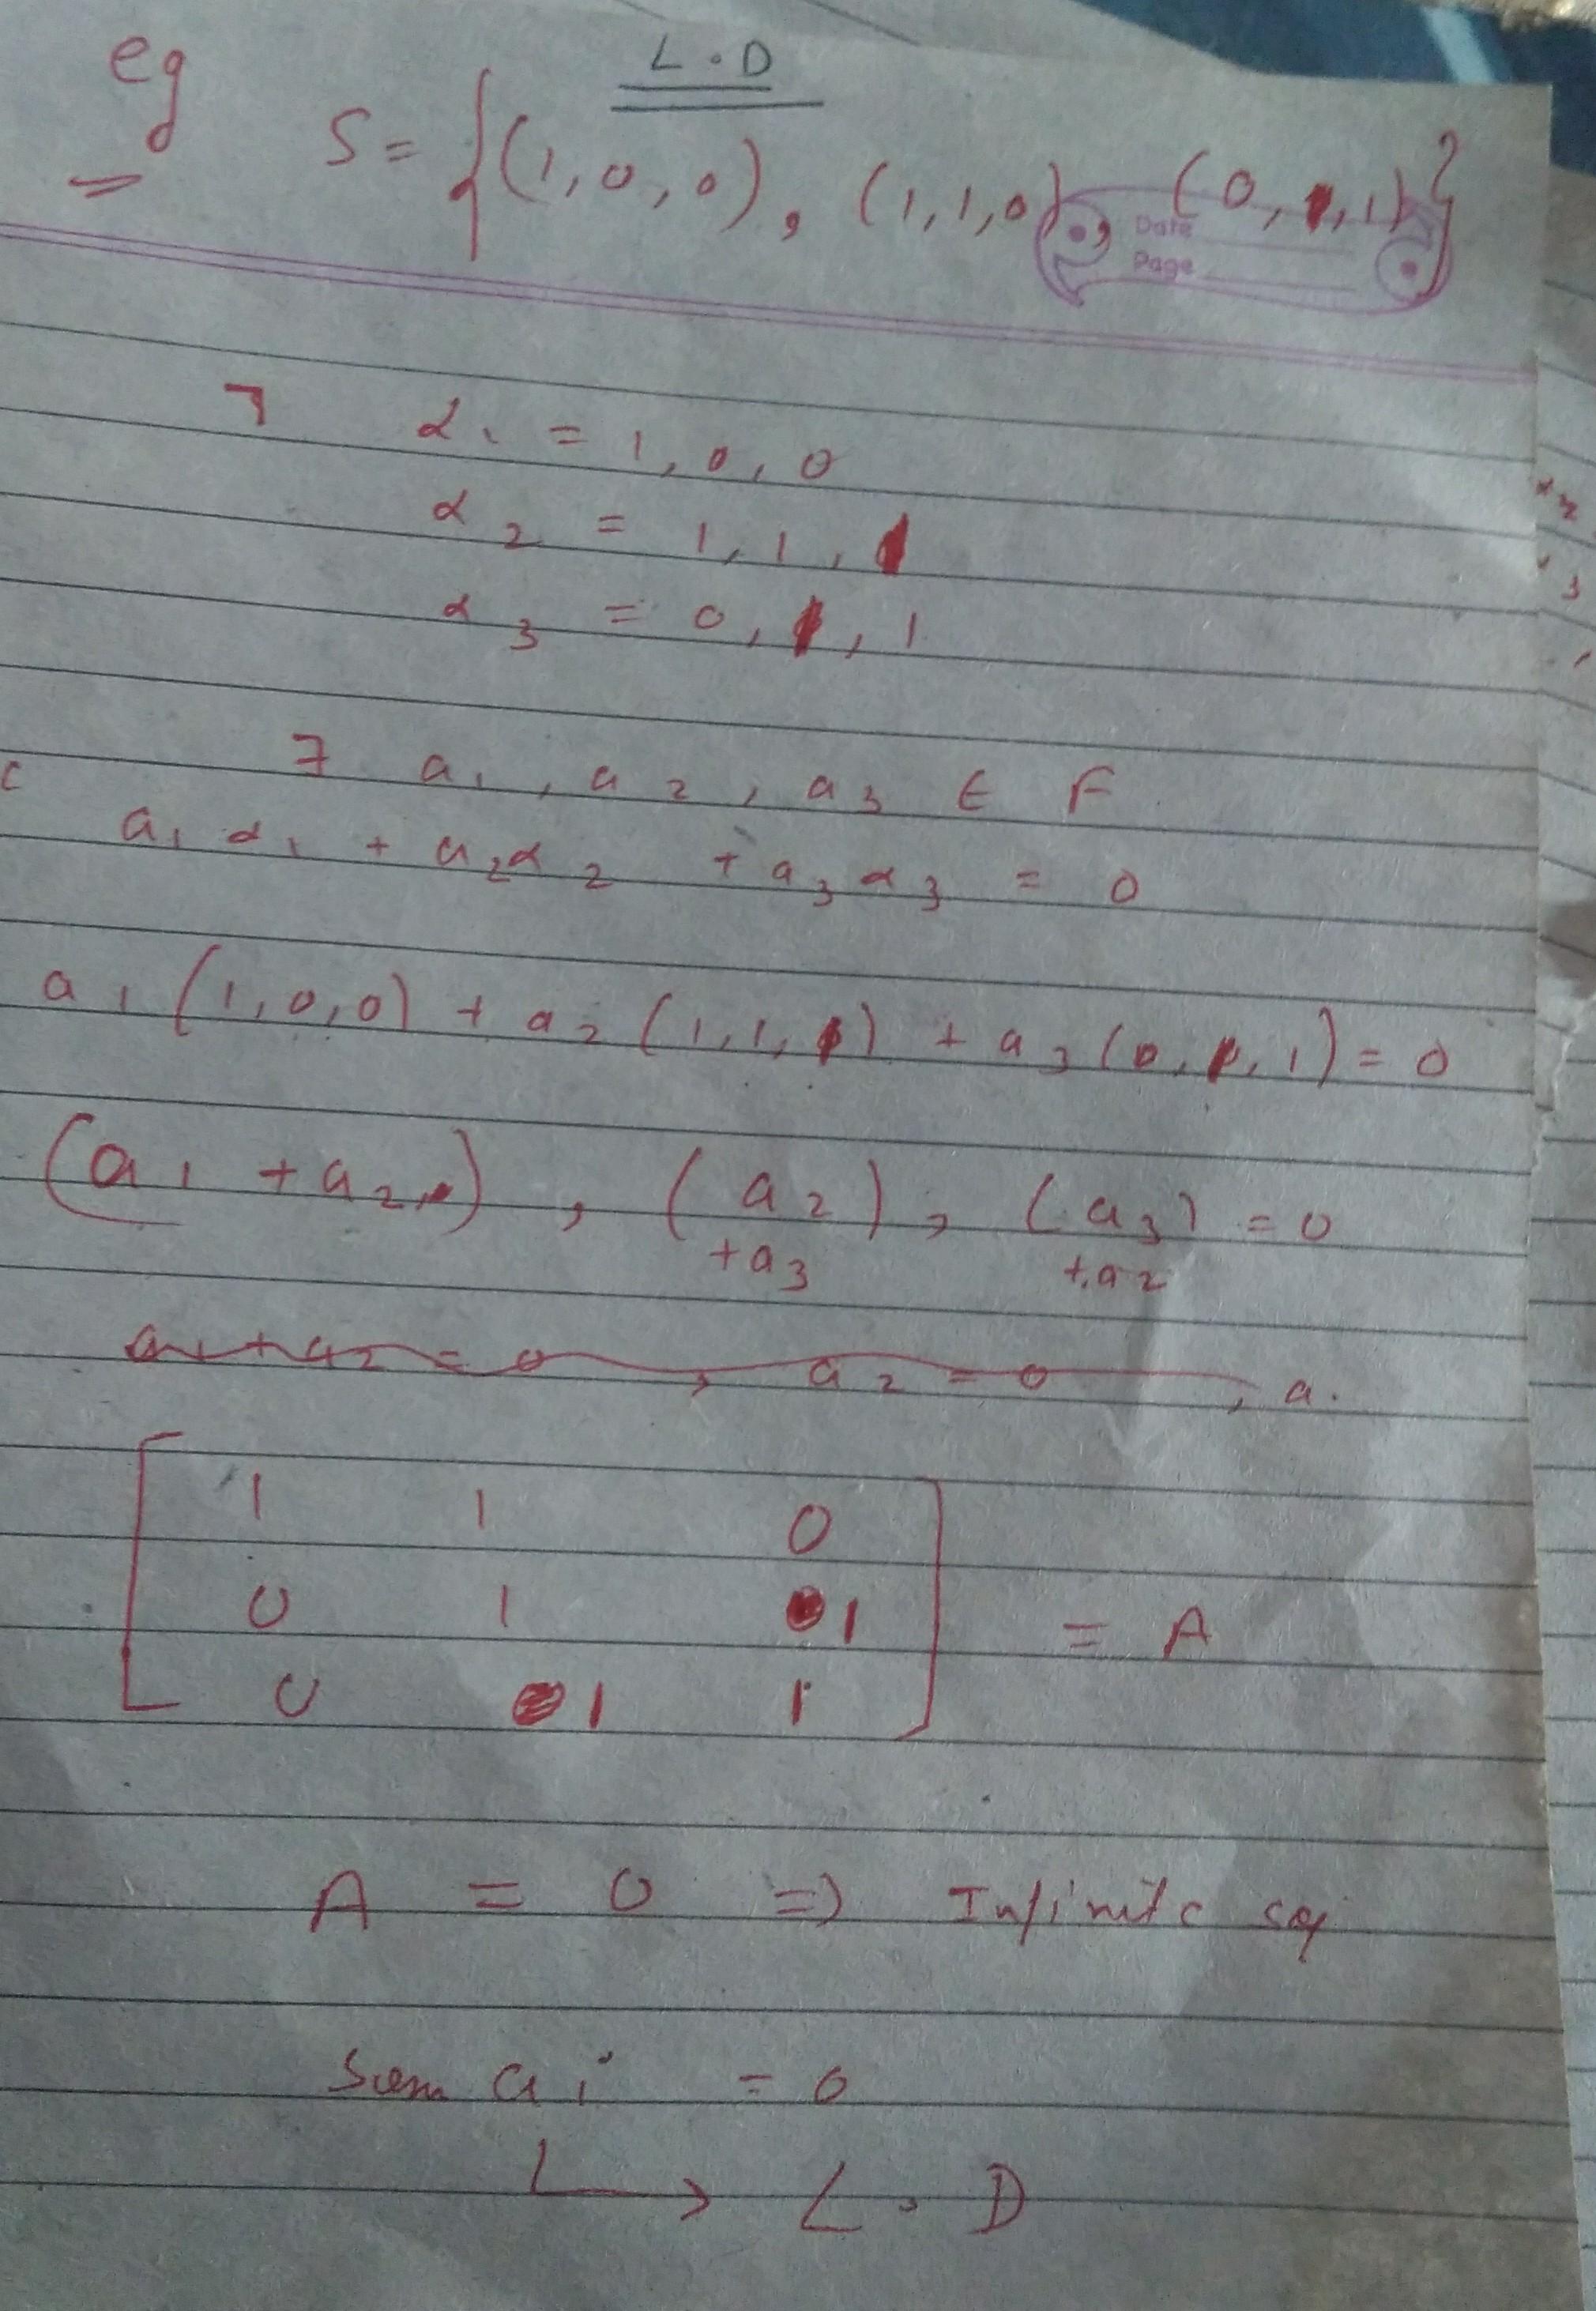 eg L.D
S = {(1,0,0), (1,1,0), (0,1,1)}
Date
Page
α1 = 1,0,0
α2 = 1,1,1
α3 = 0,1,1
∃ a1, a2, a3 ∈ F
a1 α1 + a2 α2 + a3 α3 = 0
a1 (1,0,0) + a2 (1,1,1) + a3 (0,1,1) = 0
(a1 + a2), (a2), (a3) = 0
+a3 +a2
a1 + a2 = 0, a2 = 0, a.
1 1 0
0 1 1 = A
0 1 1
A = 0 => Infinite
a i = 0
L.D